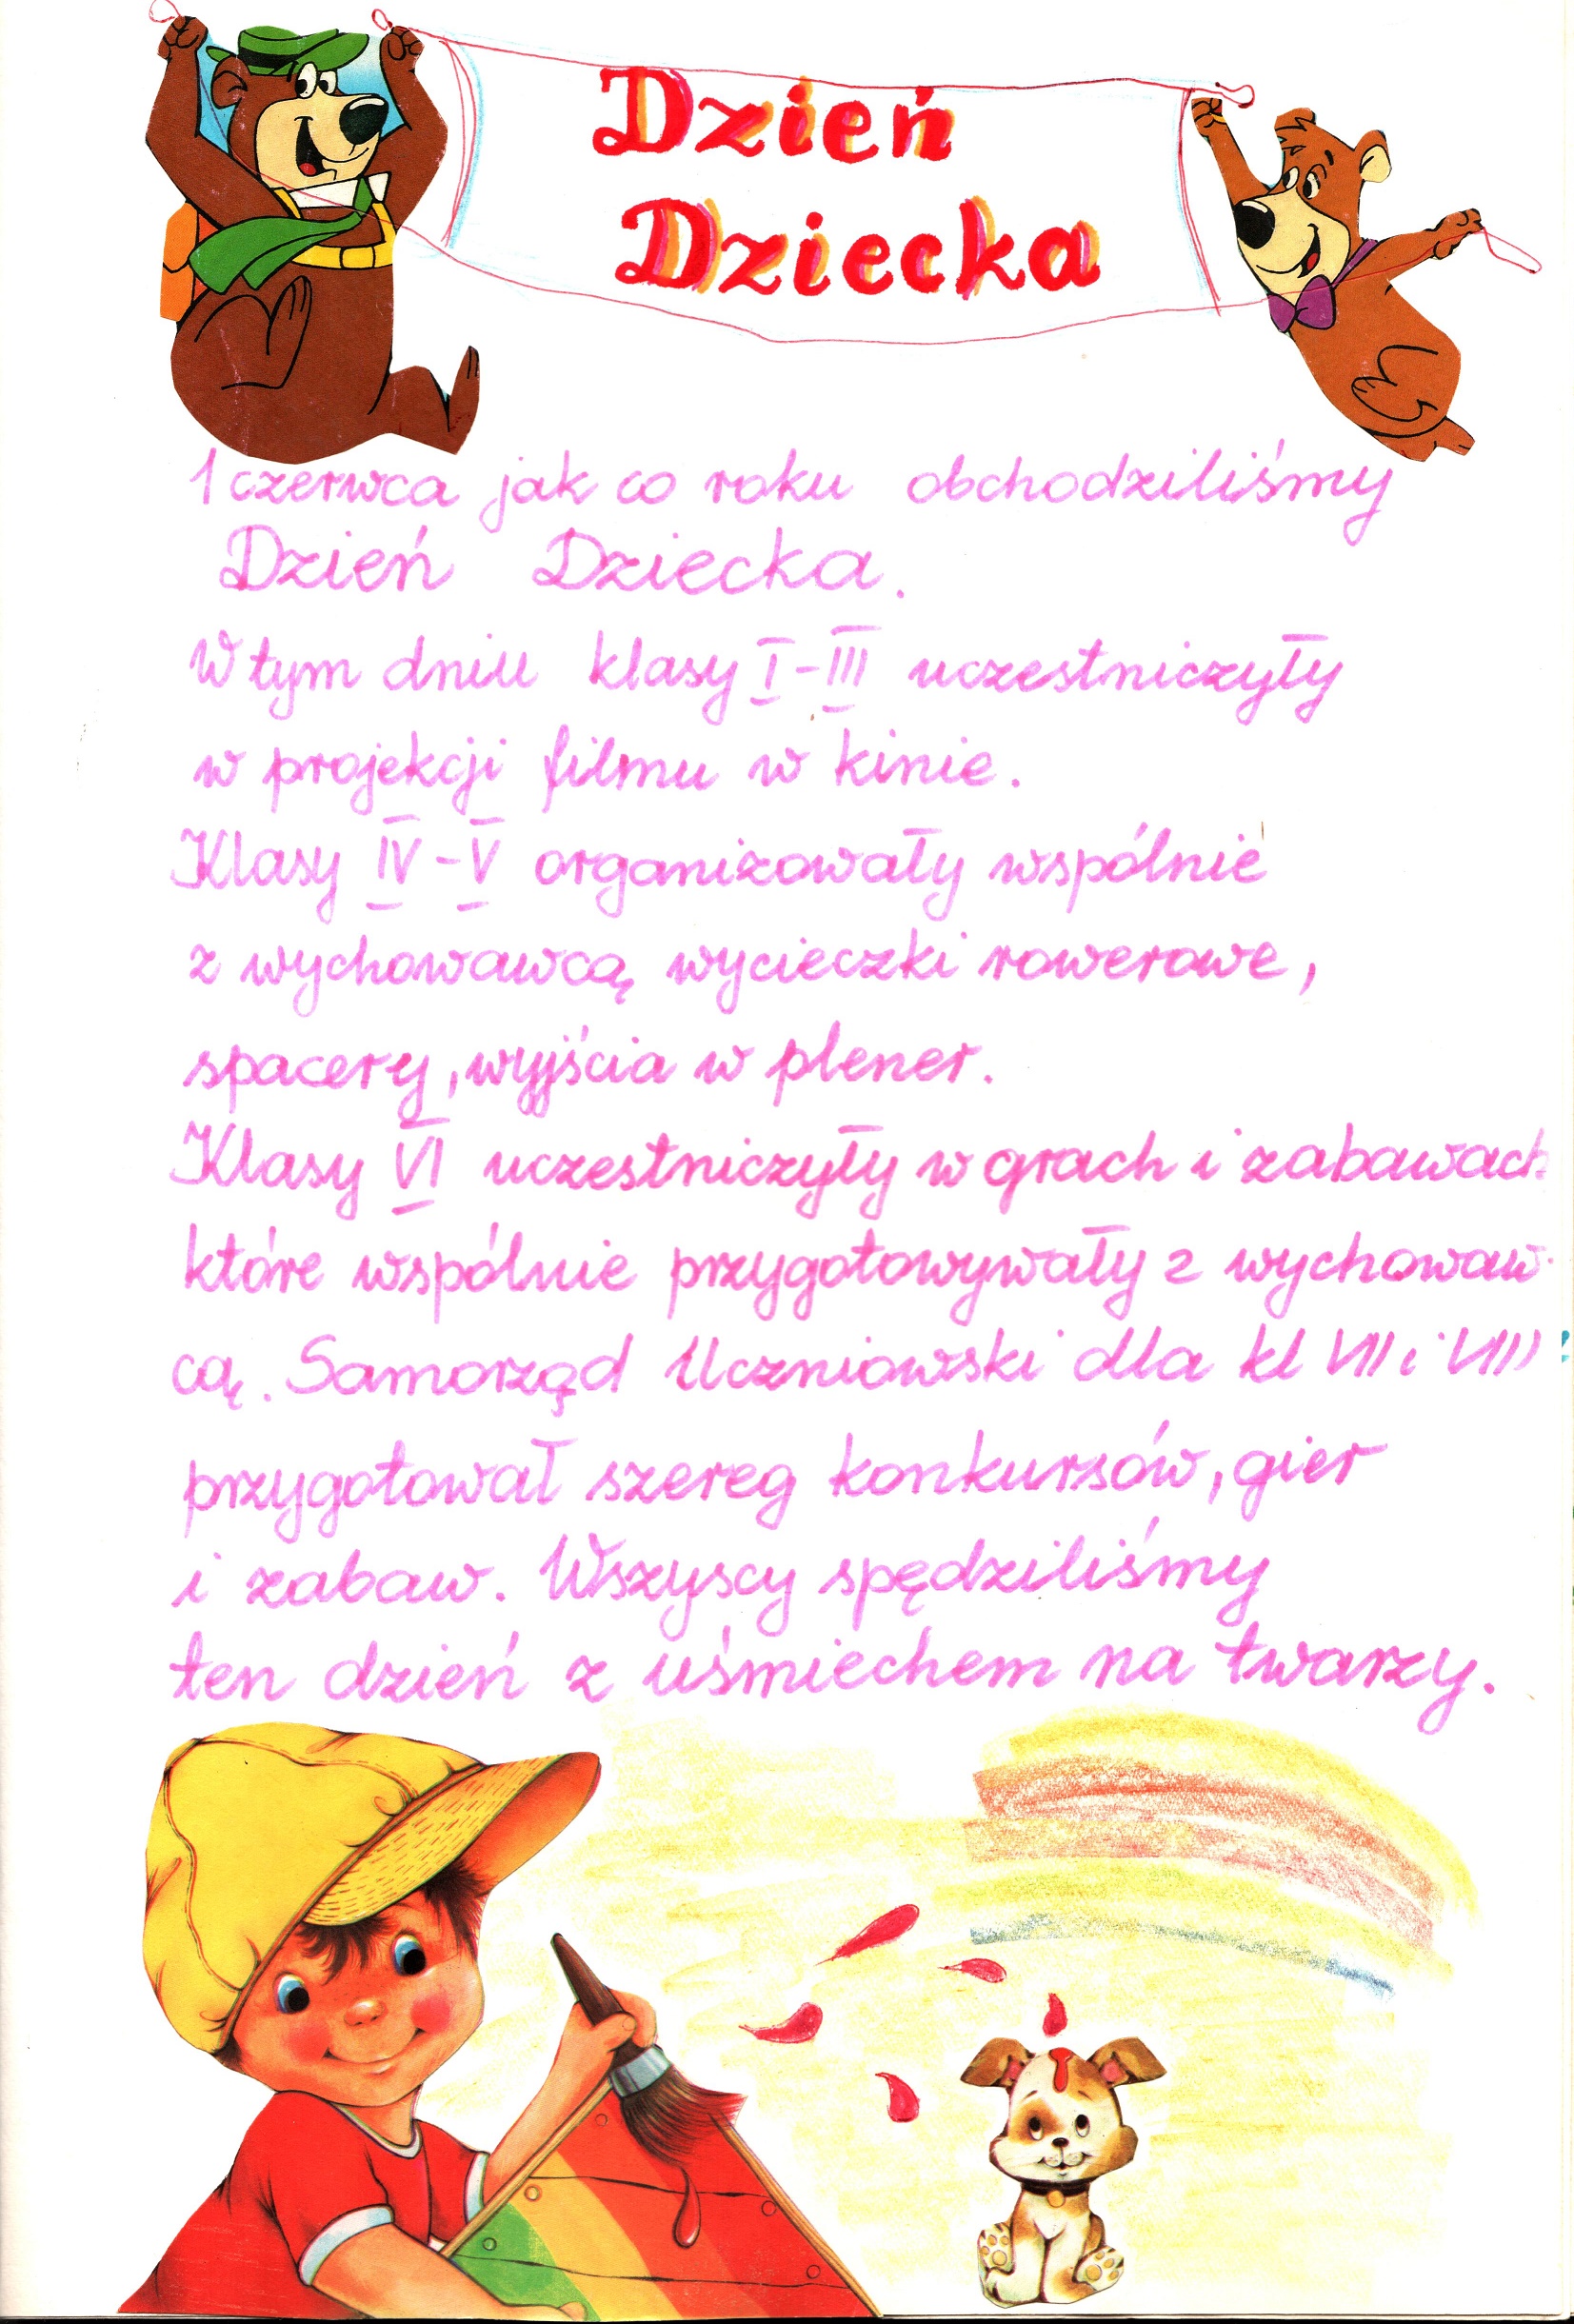 Dzień
Dziecka
1 czerwca jak co roku obchodziliśmy
Dzień Dziecka.
W tym dniu klasy I-III uczestniczyły
w projekcji filmu w kinie.
Klasy IV-V organizowały wspólnie
z wychowawcą wycieczki rowerowe,
spacery, wyjścia w plener.
Klasy VI uczestniczyły w grach i zabawach
które wspólnie przygotowywały z wychowaw-
cą. Samorząd Uczniowski dla kl VII i VIII
przygotował szereg konkursów, gier
i zabaw. Wszyscy spędziliśmy
ten dzień z uśmiechem na twarzy.